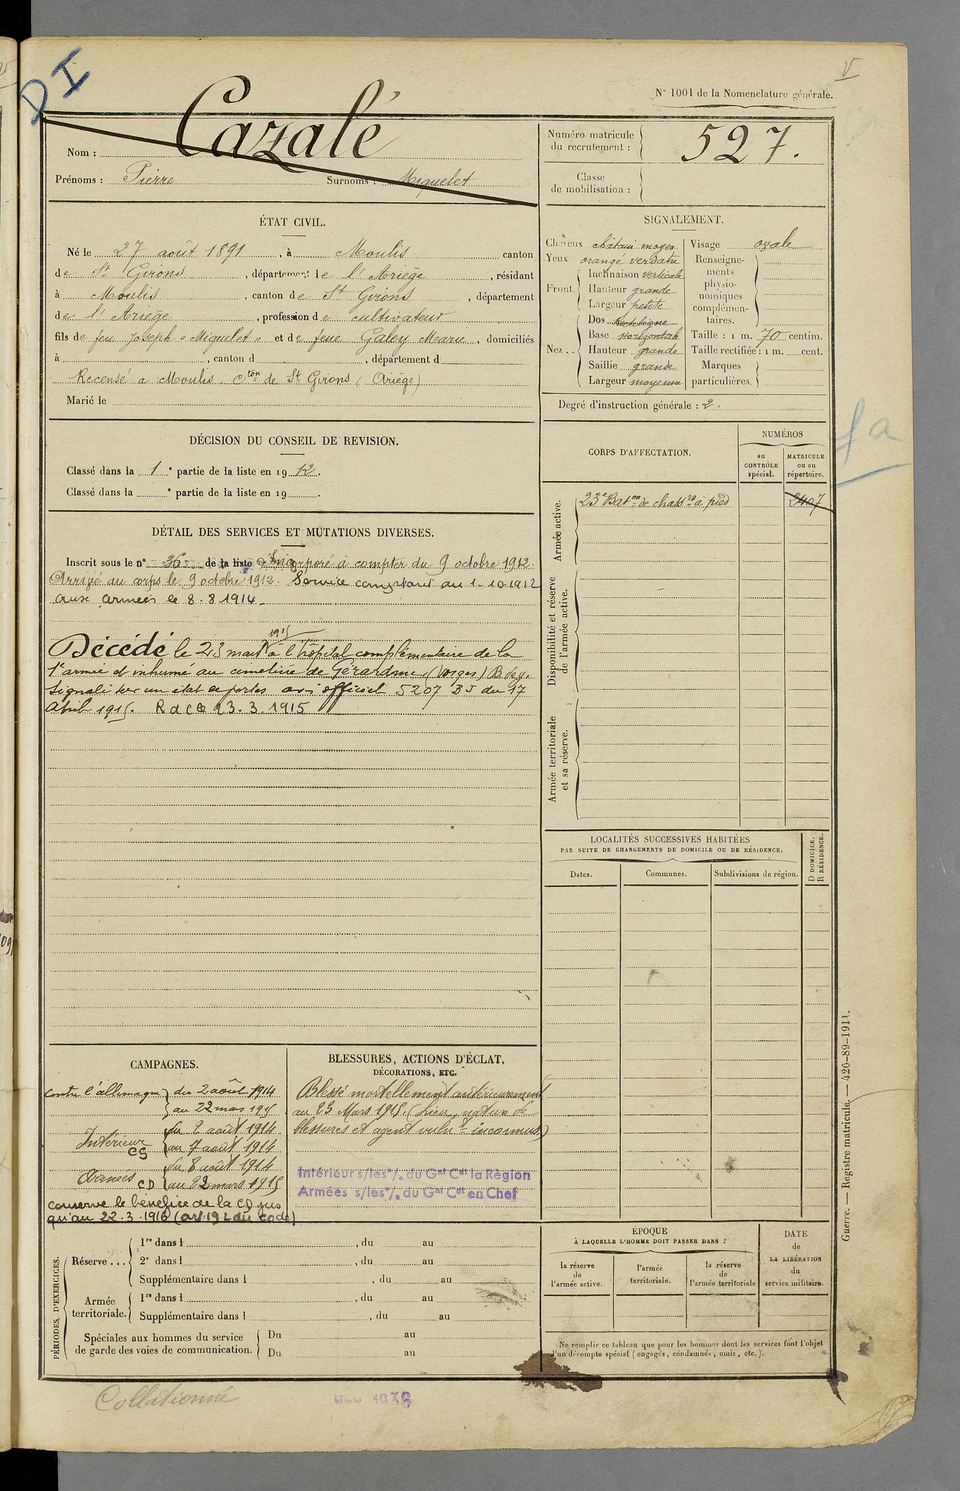 DI
V
N° 1001 de la Nomenclature générale.
Nom : Cazalé
Prénoms : Pierre Surnoms : Miquelet
Numéro matricule du recrutement : 527.
Classe de mobilisation :
ÉTAT CIVIL.
Né le 27 août 1891, à Moulis canton
de St Girons, département de l'Ariège, résidant
à Moulis, canton de St Girons, département
de l'Ariège, profession de cultivateur
fils de feu Joseph "Miquelet" et de feue Galey Marie, domiciliés
à , canton d , département d
Recensé à Moulis Cton de St Girons (Ariège)
Marié le
SIGNALEMENT.
Cheveux châtain moyen
Yeux orangé verdâtre
Front. Inclinaison verticale
Hauteur grande
Largeur petite
Nez.. Dos rectiligne
Base horizontale
Hauteur grande
Saillie grande
Largeur moyenne
Visage ovale
Renseignements physionomiques complémentaires.
Taille : 1 m. 70 centim.
Taille rectifiée : 1 m. cent.
Marques particulières.
Degré d'instruction générale : 2.
DÉCISION DU CONSEIL DE REVISION.
Classé dans la 1e partie de la liste en 1912.
Classé dans la e partie de la liste en 19 .
DÉTAIL DES SERVICES ET MUTATIONS DIVERSES.
Inscrit sous le n° 36 de la liste Incorporé à compter du 9 octobre 1912.
Arrivé au corps le 9 octobre 1912. Service comptant du 1-10-1912
aux armées le 8.8.1914
Décédé le 23 mars 1915 à l'hôpital complémentaire de la
1e armée et inhumé au cimetière de Gérardmer (Vosges)
Signalé sur un état de pertes avis officiel 5207 BS du 17
avril 1915. R d C le 23.3.1915
CORPS D'AFFECTATION.
NUMÉROS
au CONTRÔLE spécial.
MATRICULE ou au répertoire.
Armée active.
23e Baton de chassrs à pied
2407
Disponibilité et réserve de l'armée active.
Armée territoriale et sa réserve.
1a
LOCALITÉS SUCCESSIVES HABITÉES
PAR SUITE DE CHANGEMENTS DE DOMICILE OU DE RÉSIDENCE.
Dates.
Communes.
Subdivisions de région.
D DOMICILE.
R RÉSIDENCE.
CAMPAGNES.
Contre l'Allemagne du 2 août 1914
au 22 mars 1915
Intérieur CS du 2 août 1914
au 7 août 1914
Armées CD du 8 août 1914
au 22 mars 1915
conserve le bénéfice de la CD jus
qu'au 22.3.1916 (art. 19 L du code)
BLESSURES, ACTIONS D'ÉCLAT, DÉCORATIONS, ETC.
Blessé mortellement antérieurement
au 23 Mars 1915. (Lieu, nature de
blessures et agent vulnt inconnus)
Intérieur s/les o/. du Gal Cdt la Région
Armées s/les o/. du Gal Cdt en Chef
PÉRIODES D'EXERCICES.
Réserve... 1re dans l , du au
2e dans l , du au
Supplémentaire dans l , du au
Armée territoriale. 1re dans l , du au
Supplémentaire dans l , du au
Spéciales aux hommes du service de garde des voies de communication. Du au
Du au
ÉPOQUE
À LAQUELLE L'HOMME DOIT PASSER DANS :
la réserve de l'armée active.
l'armée territoriale.
la réserve de l'armée territoriale
DATE de LA LIBÉRATION du service militaire.
Ne remplir ce tableau que pour les hommes dont les services font l'objet
d'un décompte spécial (engagés, condamnés, omis, etc.).
Guerre. — Registre matricule. — 426-89-1911.
Collationné